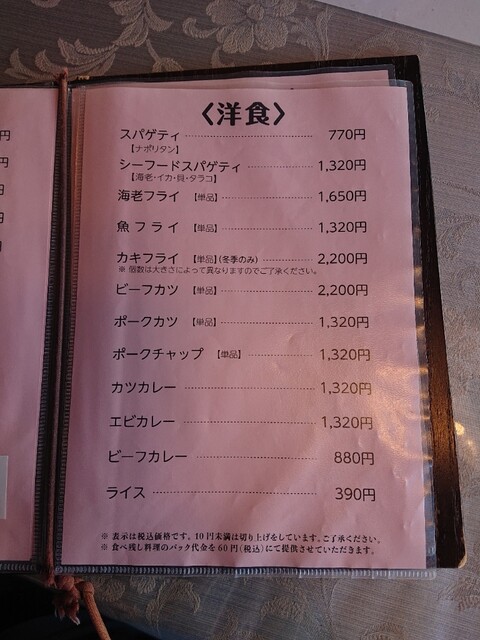 〈洋食〉
スパゲティ 770円
【ナポリタン】
シーフードスパゲティ 1,320円
【海老・イカ・貝・タラコ】
海老フライ 【単品】 1,650円
魚フライ 【単品】 1,320円
カキフライ 【単品】(冬季のみ) 2,200円
※ 個数は大きさによって異なりますのでご了承ください。
ビーフカツ 【単品】 2,200円
ポークカツ 【単品】 1,320円
ポークチャップ 【単品】 1,320円
カツカレー 1,320円
エビカレー 1,320円
ビーフカレー 880円
ライス 390円
※ 表示は税込価格です。10円未満は切り上げをしています。ご了承ください。
※ 食べ残し料理のパック代金を60円(税込)にて提供させていただきます。
円
円
円
円
円